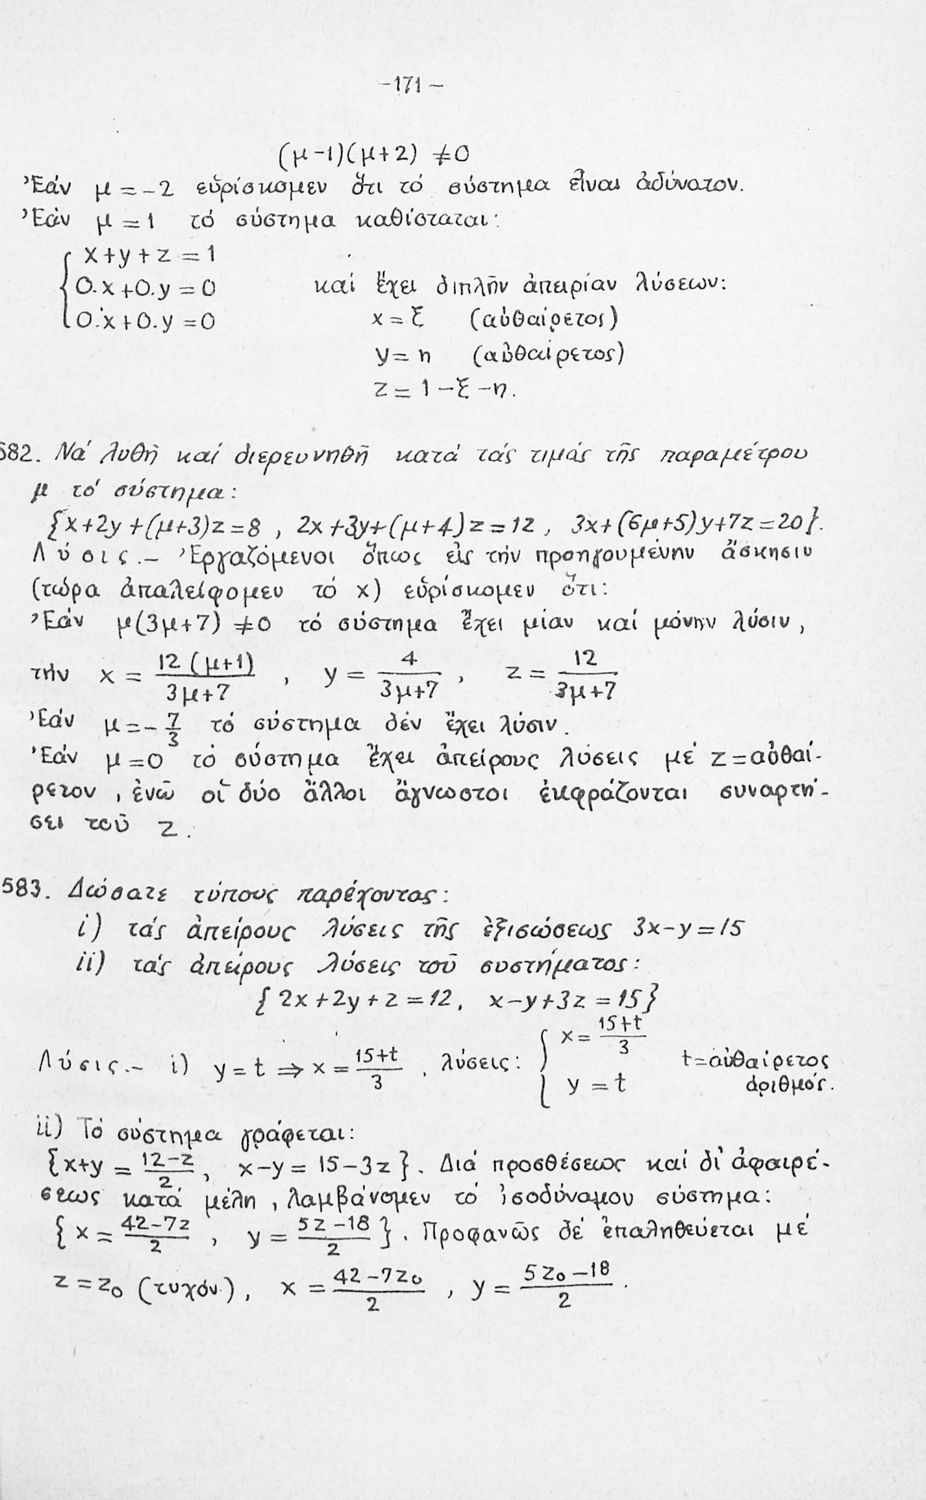 -171-
(μ-1)(μ+2) ≠0
Ἐάν μ=-2 εὑρίσκομεν ὅτι τό σύστημα εἶναι ἀδύνατον.
Ἐάν μ=1 τό σύστημα καθίσταται:
x+y+z=1
0.x+0.y=0 καί ἔχει διπλῆν ἀπειρίαν λύσεων:
0.x+0.y=0 x=ξ (αὐθαίρετος)
y=η (αὐθαίρετος)
z=1-ξ-η.
582. Νά λυθῇ καί διερευνηθῇ κατά τάς τιμάς τῆς παραμέτρου
μ τό σύστημα:
{x+2y+(μ+3)z=8, 2x+3y+(μ+4)z=12, 3x+(6μ+5)y+7z=20}.
Λύσις.- Ἐργαζόμενοι ὅπως εἰς τήν προηγουμένην ἄσκησιν
(τώρα ἀπαλείφομεν τό x) εὑρίσκομεν ὅτι:
Ἐάν μ(3μ+7) ≠0 τό σύστημα ἔχει μίαν καί μόνην λύσιν,
τήν x = 12(μ+1)/3μ+7, y = 4/3μ+7, z = 12/3μ+7
Ἐάν μ=-7/3 τό σύστημα δέν ἔχει λύσιν.
Ἐάν μ=0 τό σύστημα ἔχει ἀπείρους λύσεις μέ z=αὐθαί-
ρετον, ἐνῶ οἱ δύο ἄλλοι ἄγνωστοι ἐκφράζονται συναρτή-
σει τοῦ z.
583. Δώσατε τύπους παρέχοντας:
i) τάς ἀπείρους λύσεις τῆς ἐξισώσεως 3x-y=15
ii) τάς ἀπείρους λύσεις τοῦ συστήματος:
{2x+2y+z=12, x-y+3z=15}
Λύσις.- i) y=t ⇒ x = 15+t/3. λύσεις: { x = 15+t/3 t=αὐθαίρετος
y=t ἀριθμός.
ii) Τό σύστημα γράφεται:
{x+y = 12-z/2, x-y = 15-3z}. Διά προσθέσεως καί δι' ἀφαιρέ-
σεως κατά μέλη, λαμβάνομεν τό ἰσοδύναμον σύστημα:
{x = 42-7z/2, y = 5z-18/2}. Προφανῶς δέ ἐπαληθεύεται μέ
z=z₀ (τυχόν), x = 42-7z₀/2, y = 5z₀-18/2.